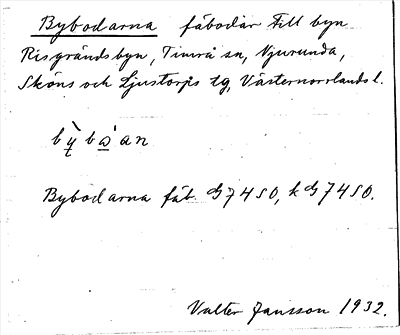 Bybodarna fäbodar till byn
Risgrändsbyn, Timrå sn, Njurunda,
Sköns och Ljustorps tg, Västernorrlands l.
bybọ̀an
Bybodarna fäb. G7450, k G7450.
Valter Jansson 1932.